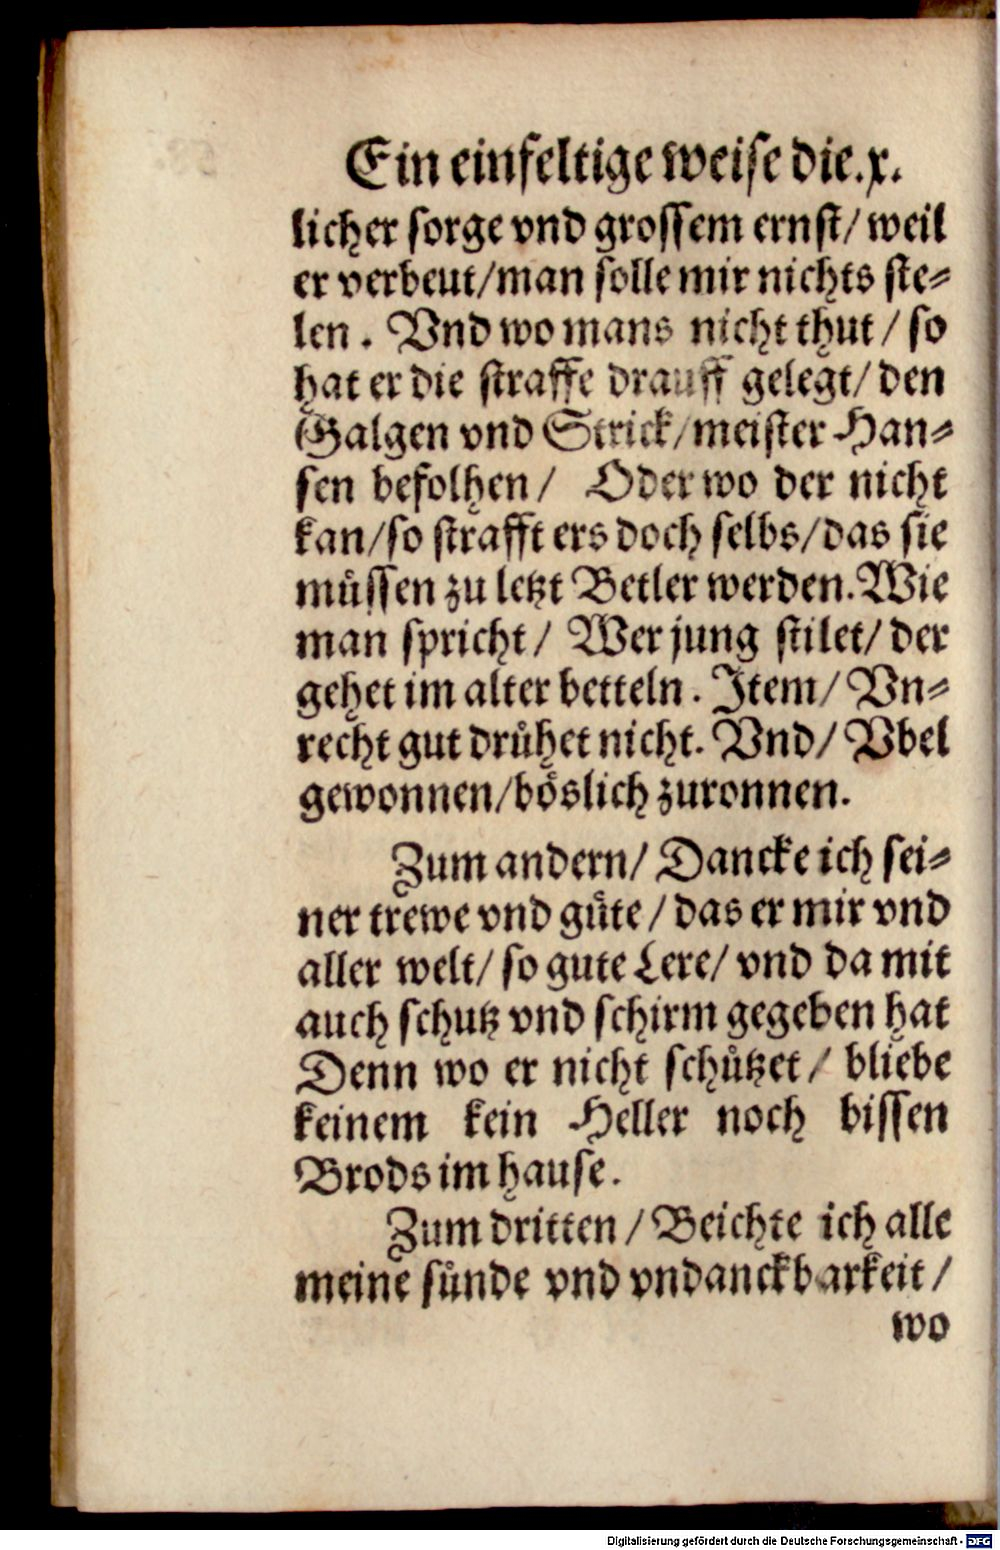 Ein einfeltige weise die.x.
licher sorge vnd grossem ernst/ weil
er verbeut/man solle mir nichts ste⸗
len. Vnd wo mans nicht thut / so
hat er die straffe drauff gelegt/ den
Galgen vnd Strick/meister Han⸗
sen befolhen/ Oder wo der nicht
kan/so strafft ers doch selbs/das sie
muͤssen zu letzt Betler werden. Wie
man spricht/ Wer jung stilet/ der
gehet im alter betteln. Item/ Vn⸗
recht gut druͤhet nicht. Vnd/ Vbel
gewonnen/boͤslich zuronnen.
Zum andern/ Dancke ich sei⸗
ner trewe vnd guͤte / das er mir vnd
aller welt/ so gute Lere/ vnd da mit
auch schutz vnd schirm gegeben hat
Denn wo er nicht schuͤtzet / bliebe
keinem kein Heller noch bissen
Brods im hause.
Zum dritten / Beichte ich alle
meine suͤnde vnd vndanckbarkeit /
wo
Digitalisierung gefördert durch die Deutsche Forschungsgemeinschaft - DFG